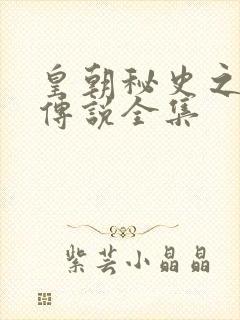 皇朝秘史之
傳說全集
紫芸小晶晶